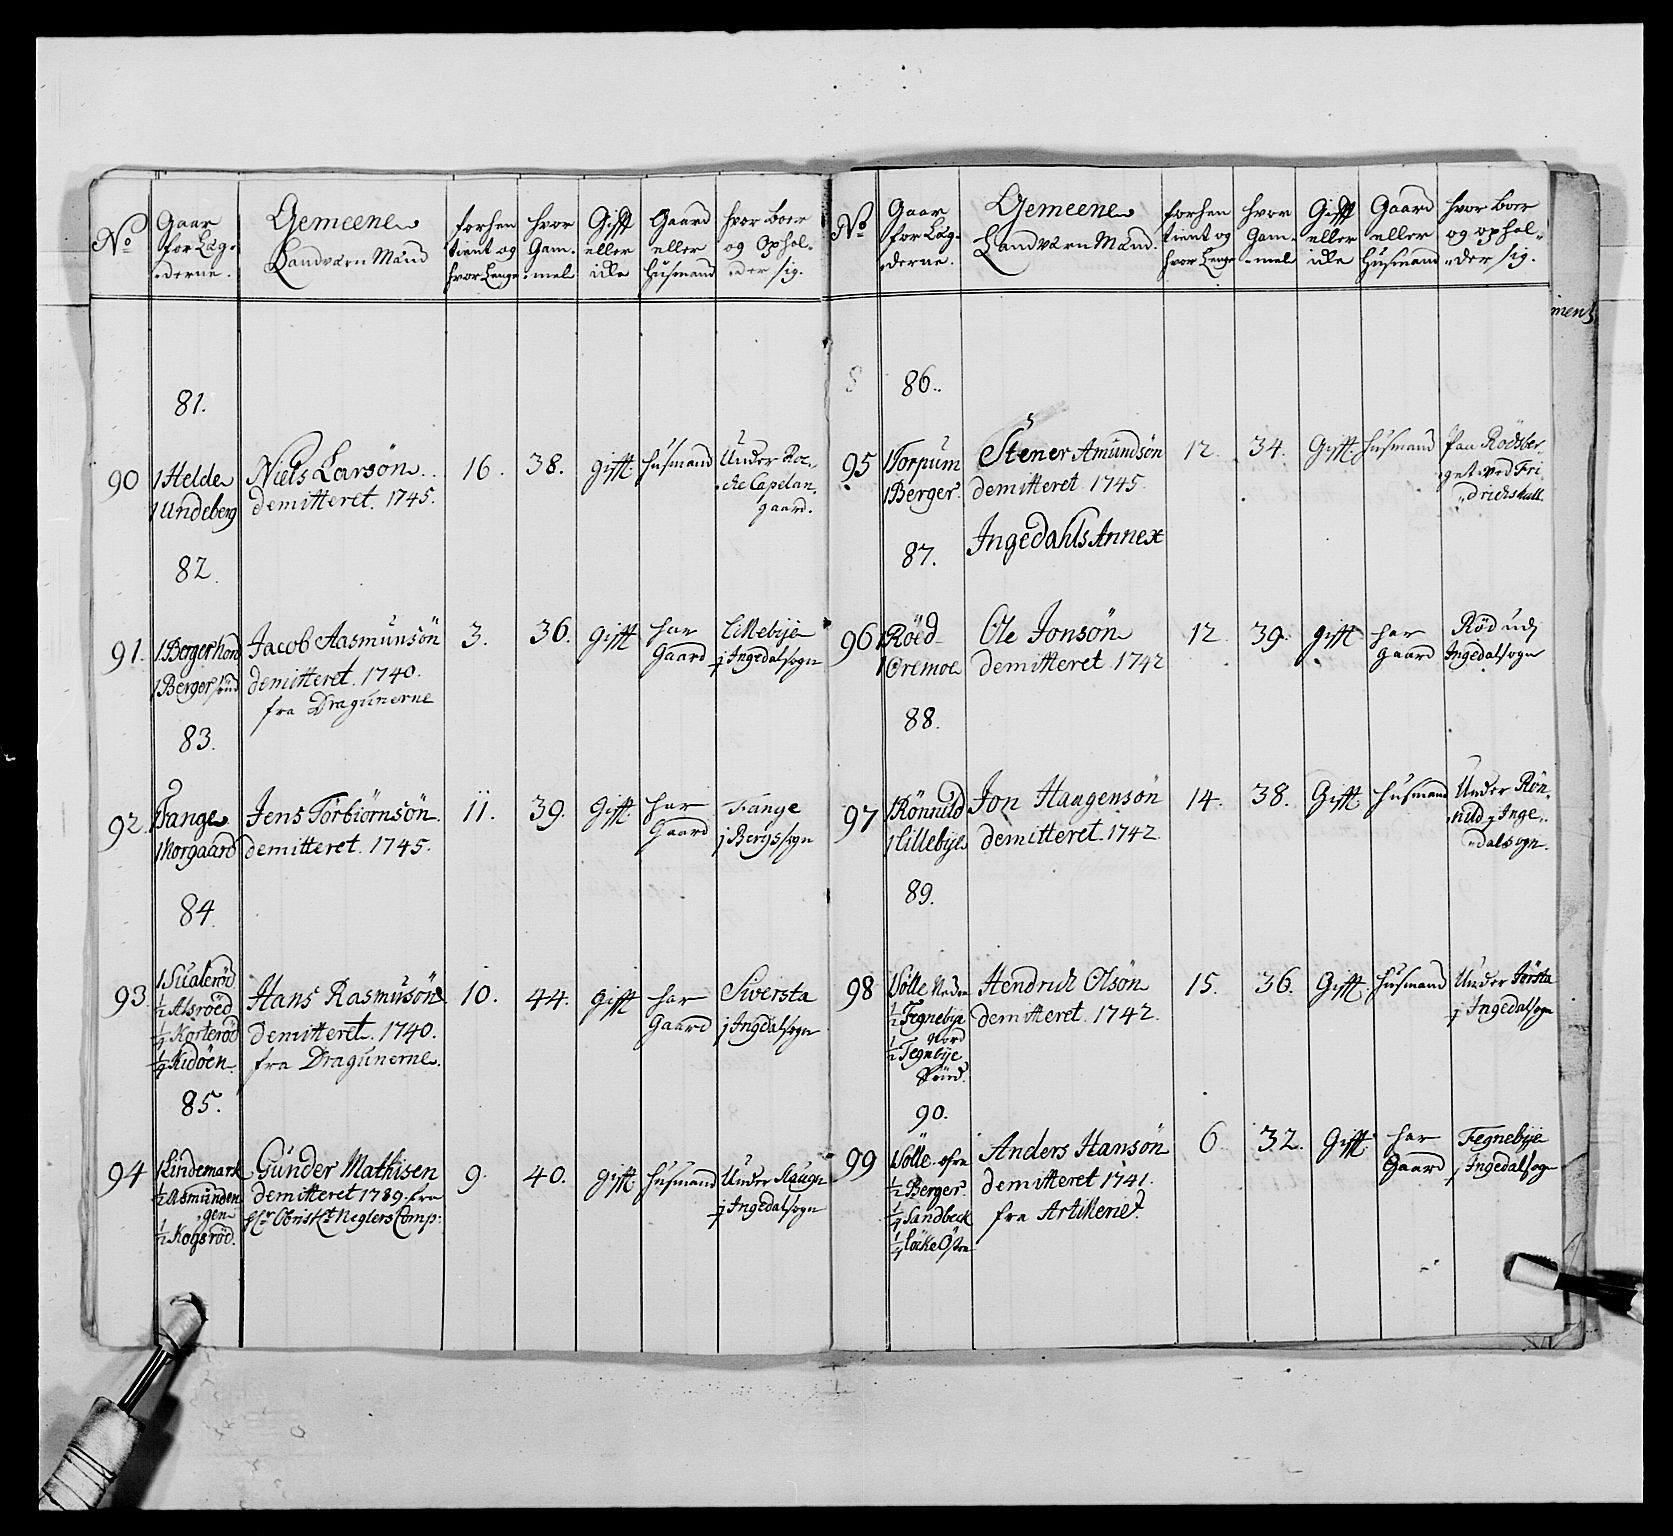 No
Gaar
for Læg-
derne.
Gemeene
Landværn Mænd
forhen
tient og
hvor Lenge
hvor
Gam-
mel
Gifft
eller
icke
Gaard
eller
Husmand
hvor boer
og Ophol-
der sig.
81.
90
1 Helde
1 Undeberg
Niels Larsön
demitteret. 1745.
16.
38.
gifft
husmand
Under
Capelan
gaard.
82.
91.
1 Berger Nord
1 Berger Sud
Jacob Aasmunsön
demitteret. 1740.
fra Dragunerne
3.
36.
gifft
har
Gaard
Lillebye
j Ingedalsogn
83.
92.
1 Fange
1 Norgaard
Jens Torbiörnsön
demitteret. 1745.
11.
39.
gifft
har
Gaard
Fange
j Bergssogn
84.
93
1 Sualeröd
1/2 Alsröed
1/4 Korteröd
1/4 Kidöen
Hans Rasmusön
demitteret. 1740.
fra Dragunerne.
10.
44.
gifft
har
Gaard
Siversta
j Ingdalsogn
85.
94
1 Lindemark
1/2 Asmunden
gen
1/2 Kogsröd.
Gunder Mathisen
demitteret 1739. fra
Hr Obrist Neglers Comp:
9.
40.
gifft
husmand
Under Haugn
j Ingedalsogn
No
Gaar
for Læg-
derne.
Gemeene
Landværn Mænd.
forhen
tient og
hvor Lenge
hvor
Gam-
mel
Gifft
eller
icke
Gaard
eller
Husmand
hvor boer
og ophol-
der sig.
ment
8
86.
95
1 Torpum
1 Berger
Stener Amundsön
demitteret. 1745.
12.
34.
Gifft
husmand
Paa Rödsber-
get ved Fri
drichshall.
87.
Ingedahls Annex
96
1 Röed
1 Oremoe
Ole Jonsön
demitteret 1742
12
39.
gifft
har
gaard
Röd udj
Ingedalsogn
88.
97
1 Rönnild
1 Lillebye
Jon Haagensön
demitteret. 1742.
14.
38.
Gifft
husmand
Under Rön-
nild j Inge-
dalsogn.
89.
98
1 Sölle Nedre
1/2 Tegnebye
Nord
1/2 Tegnebye
Sued.
Hendrich Olsön
demitteret. 1742.
15.
36.
Gifft
husmand
Under Jörsta
j Ingedalsogn
90.
99
1 Sölle ofre
1/2 Berger
1/4 Sandbeck
1/4 Löcke Östre
Anders Hansön
demitteret 1741.
fra Artilleriet.
6.
32.
Gifft
har
Gaard
Tegnebye
j Ingedalsogn